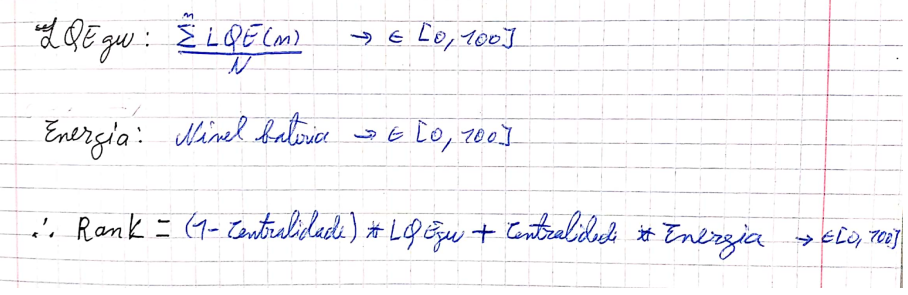 LQEgw: Σ^n LQE(n) / N → ∈ [0, 100]
Energia: Nível bateria → ∈ [0, 100]
∴ Rank = (1 - Centralidade) * LQEgw + Centralidade * Energia → ∈ [0, 100]